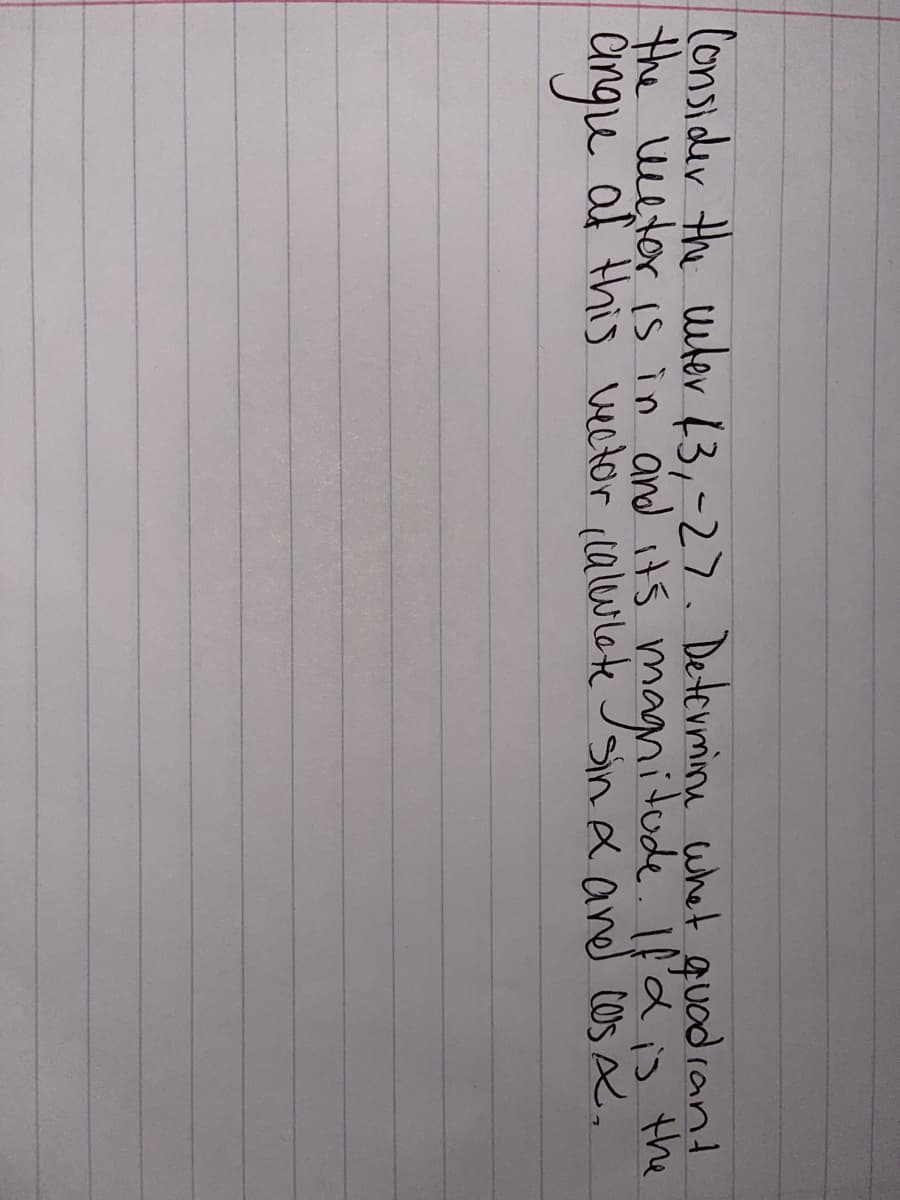 Consider the vector <3, -2>. Determine what quadrant
the vector is in and its magnitude. If α is the
angle of this vector, calculate sin α and cos α.